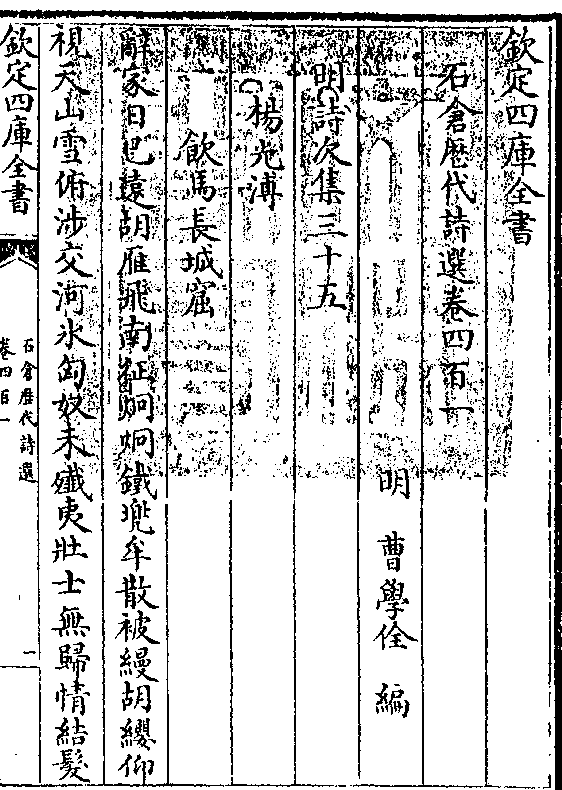 欽定四庫全書
石倉歷代詩選卷四百一
明 曹學佺 編
明詩次集三十五
楊光溥
飲馬長城窟
辭家日已遠胡雁飛南征炯炯鐵兜牟散被縵胡纓仰
視天山雪俯涉交河氷匈奴未殲夷壯士無歸情結髮
欽定四庫全書
石倉歷代詩選
卷四百一
一